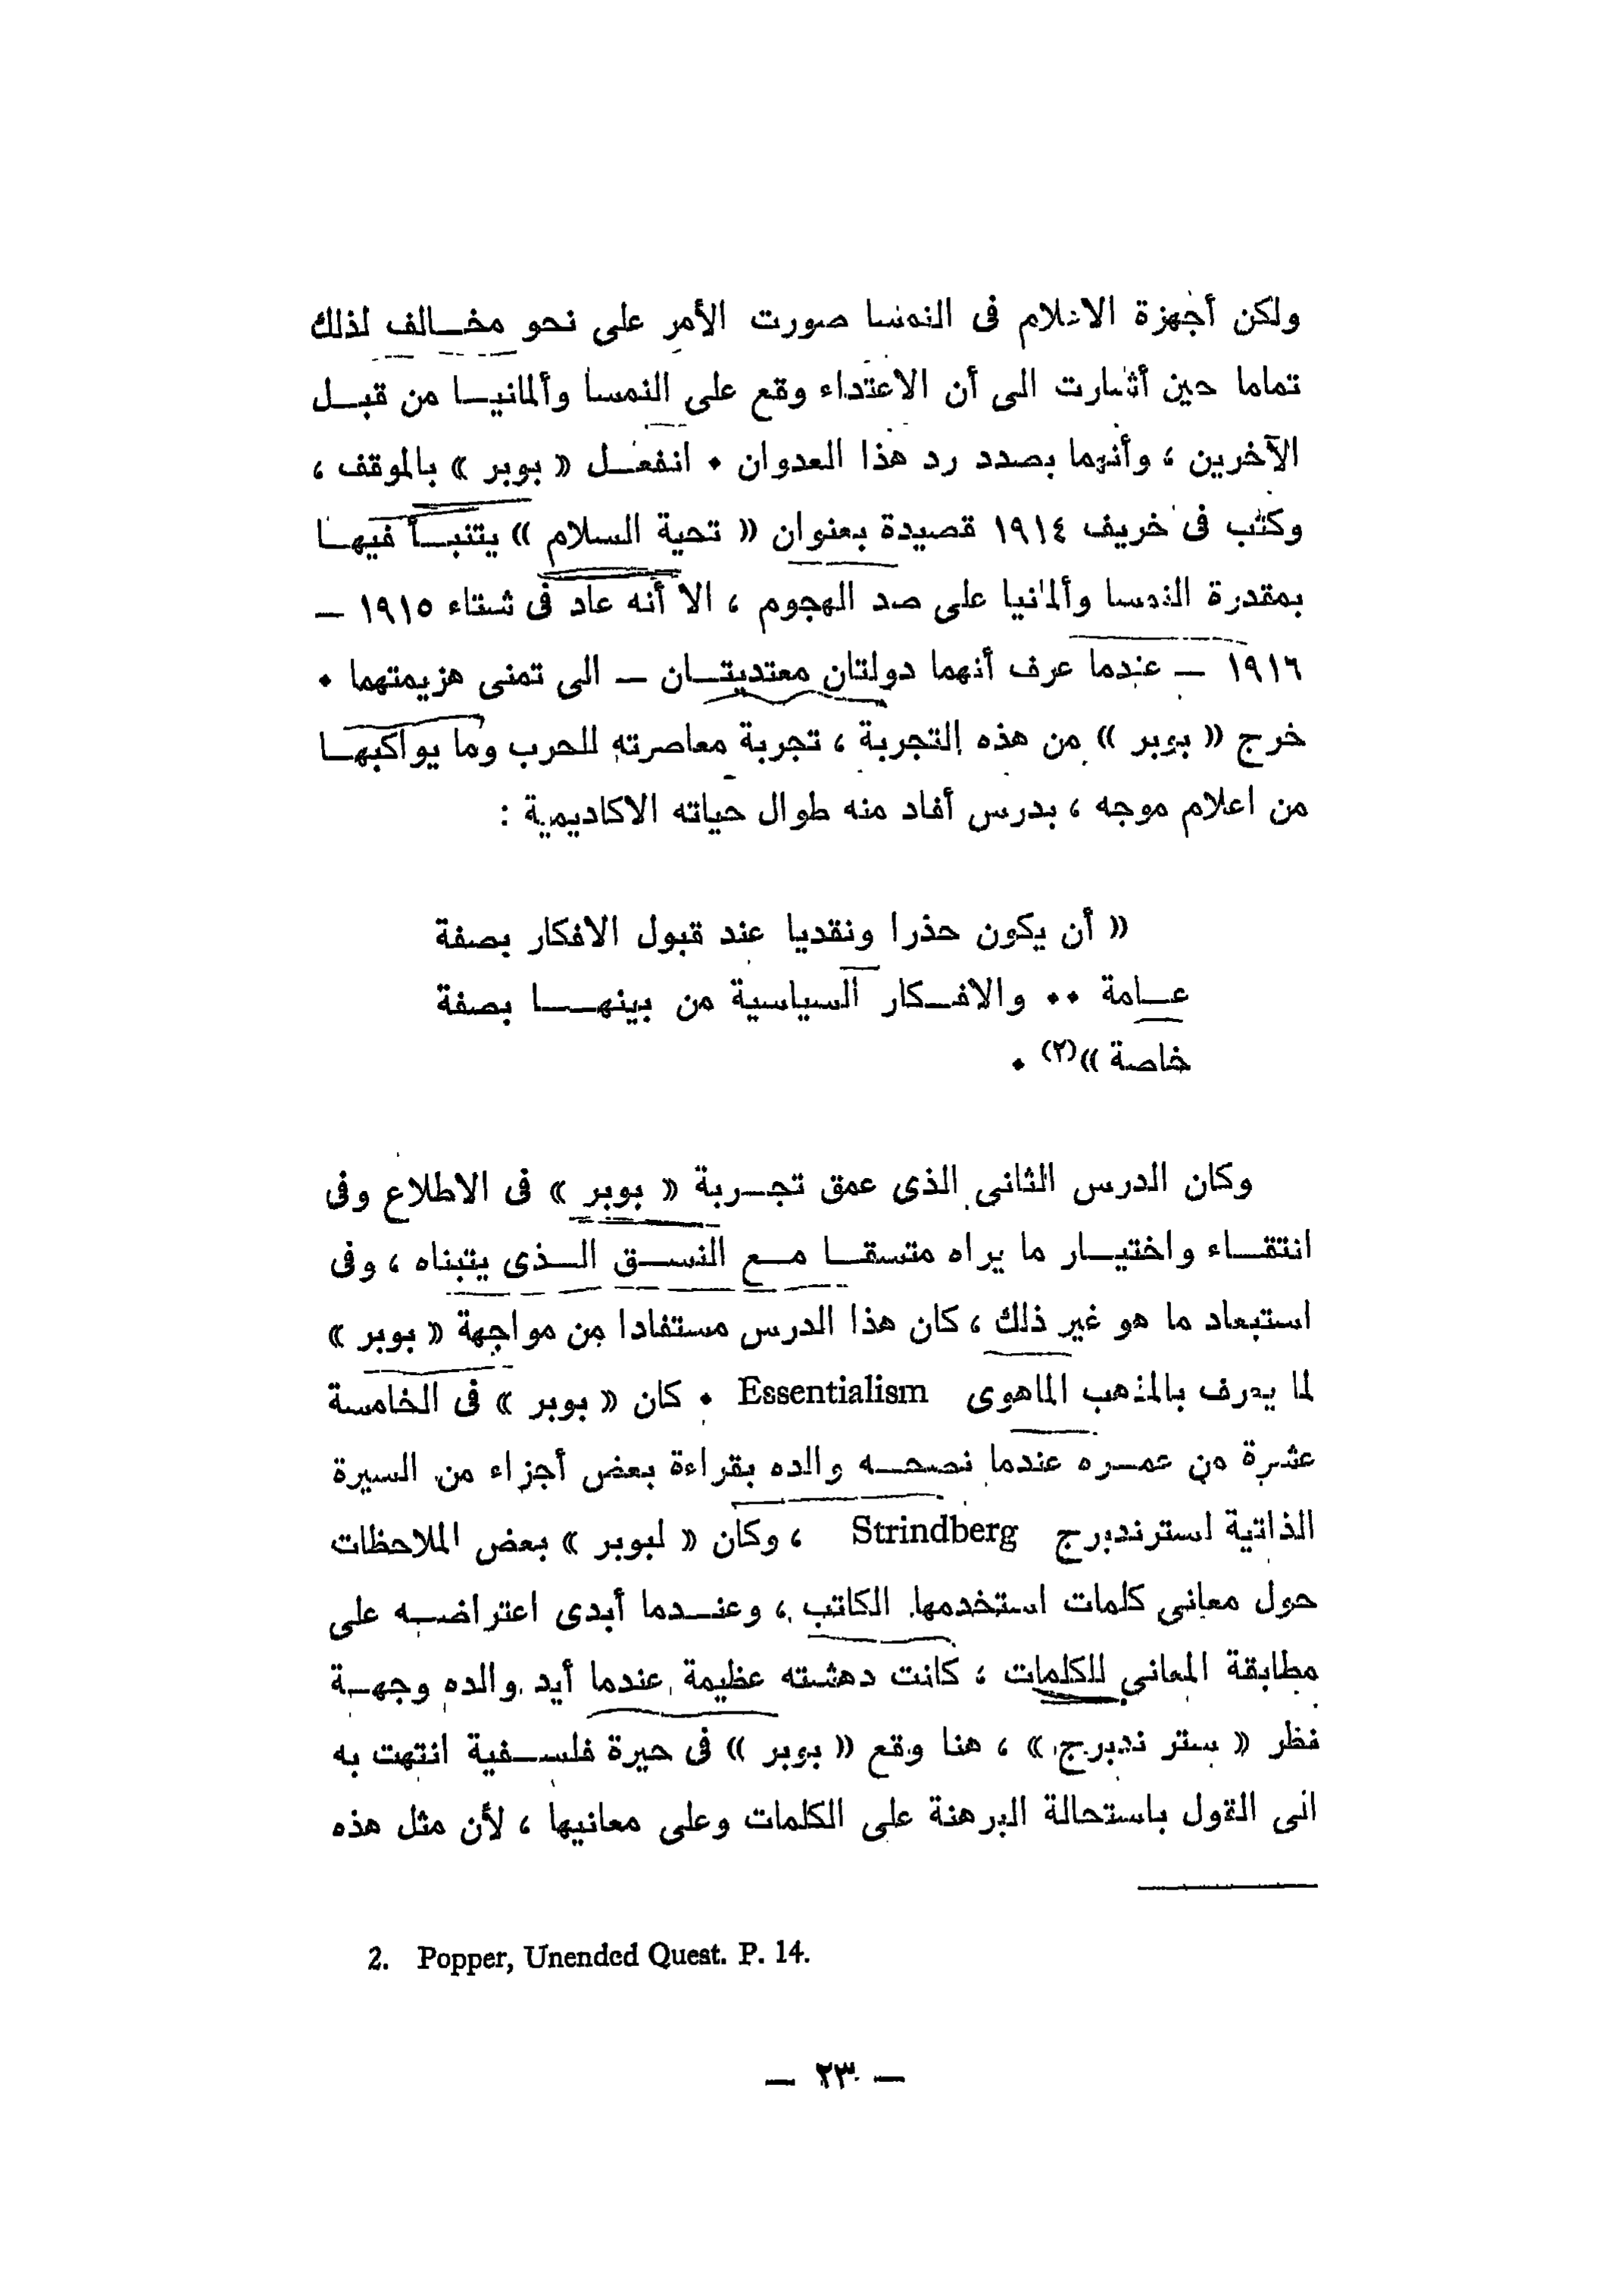 ولكن أجهزة الاعلام فى النمسا صورت الأمر على نحو مخالف لذلك
تماما حين أشارت الى أن الاعتداء وقع على النمسا وألمانيا من قبل
الآخرين ، وأنهما بصدد رد هذا العدوان . انفعل « بوبر » بالموقف ،
وكتب فى خريف ١٩١٤ قصيدة بعنوان « تحية السلام » يتنبأ فيها
بمقدرة النمسا وألمانيا على صد الهجوم ، الا أنه عاد فى شتاء ١٩١٥ –
١٩١٦ – عندما عرف أنهما دولتان معتديتان – الى تمنى هزيمتهما .
خرج « بوبر » من هذه التجربة ، تجربة معاصرته للحرب وما يواكبها
من اعلام موجه ، بدرس أفاد منه طوال حياته الاكاديمية :
« أن يكون حذرا ونقديا عند قبول الافكار بصفة
عامة .. والافكار السياسية من بينها بصفة
خاصة »(٢) .
وكان الدرس الثانى الذى عمق تجربة « بوبر » فى الاطلاع وفى
انتقاء واختيار ما يراه متسقا مع النسق الذى يتبناه ، وفى
استبعاد ما هو غير ذلك ، كان هذا الدرس مستفادا من مواجهة « بوبر »
لما يعرف بالمذهب الماهوى Essentialism . كان « بوبر » فى الخامسة
عشرة من عمره عندما نصحه والده بقراءة بعض أجزاء من السيرة
الذاتية لسترندبرج Strindberg ، وكان « لبوبر » بعض الملاحظات
حول معانى كلمات استخدمها الكاتب ، وعندما أبدى اعتراضه على
مطابقة المعانى للكلمات ، كانت دهشته عظيمة عندما أيد والده وجهة
نظر « ستر ندبرج » ، هنا وقع « بوبر » فى حيرة فلسفية انتهت به
الى القول باستحالة البرهنة على الكلمات وعلى معانيها ، لأن مثل هذه
2. Popper, Unended Quest. P. 14.
– ٢٣ –